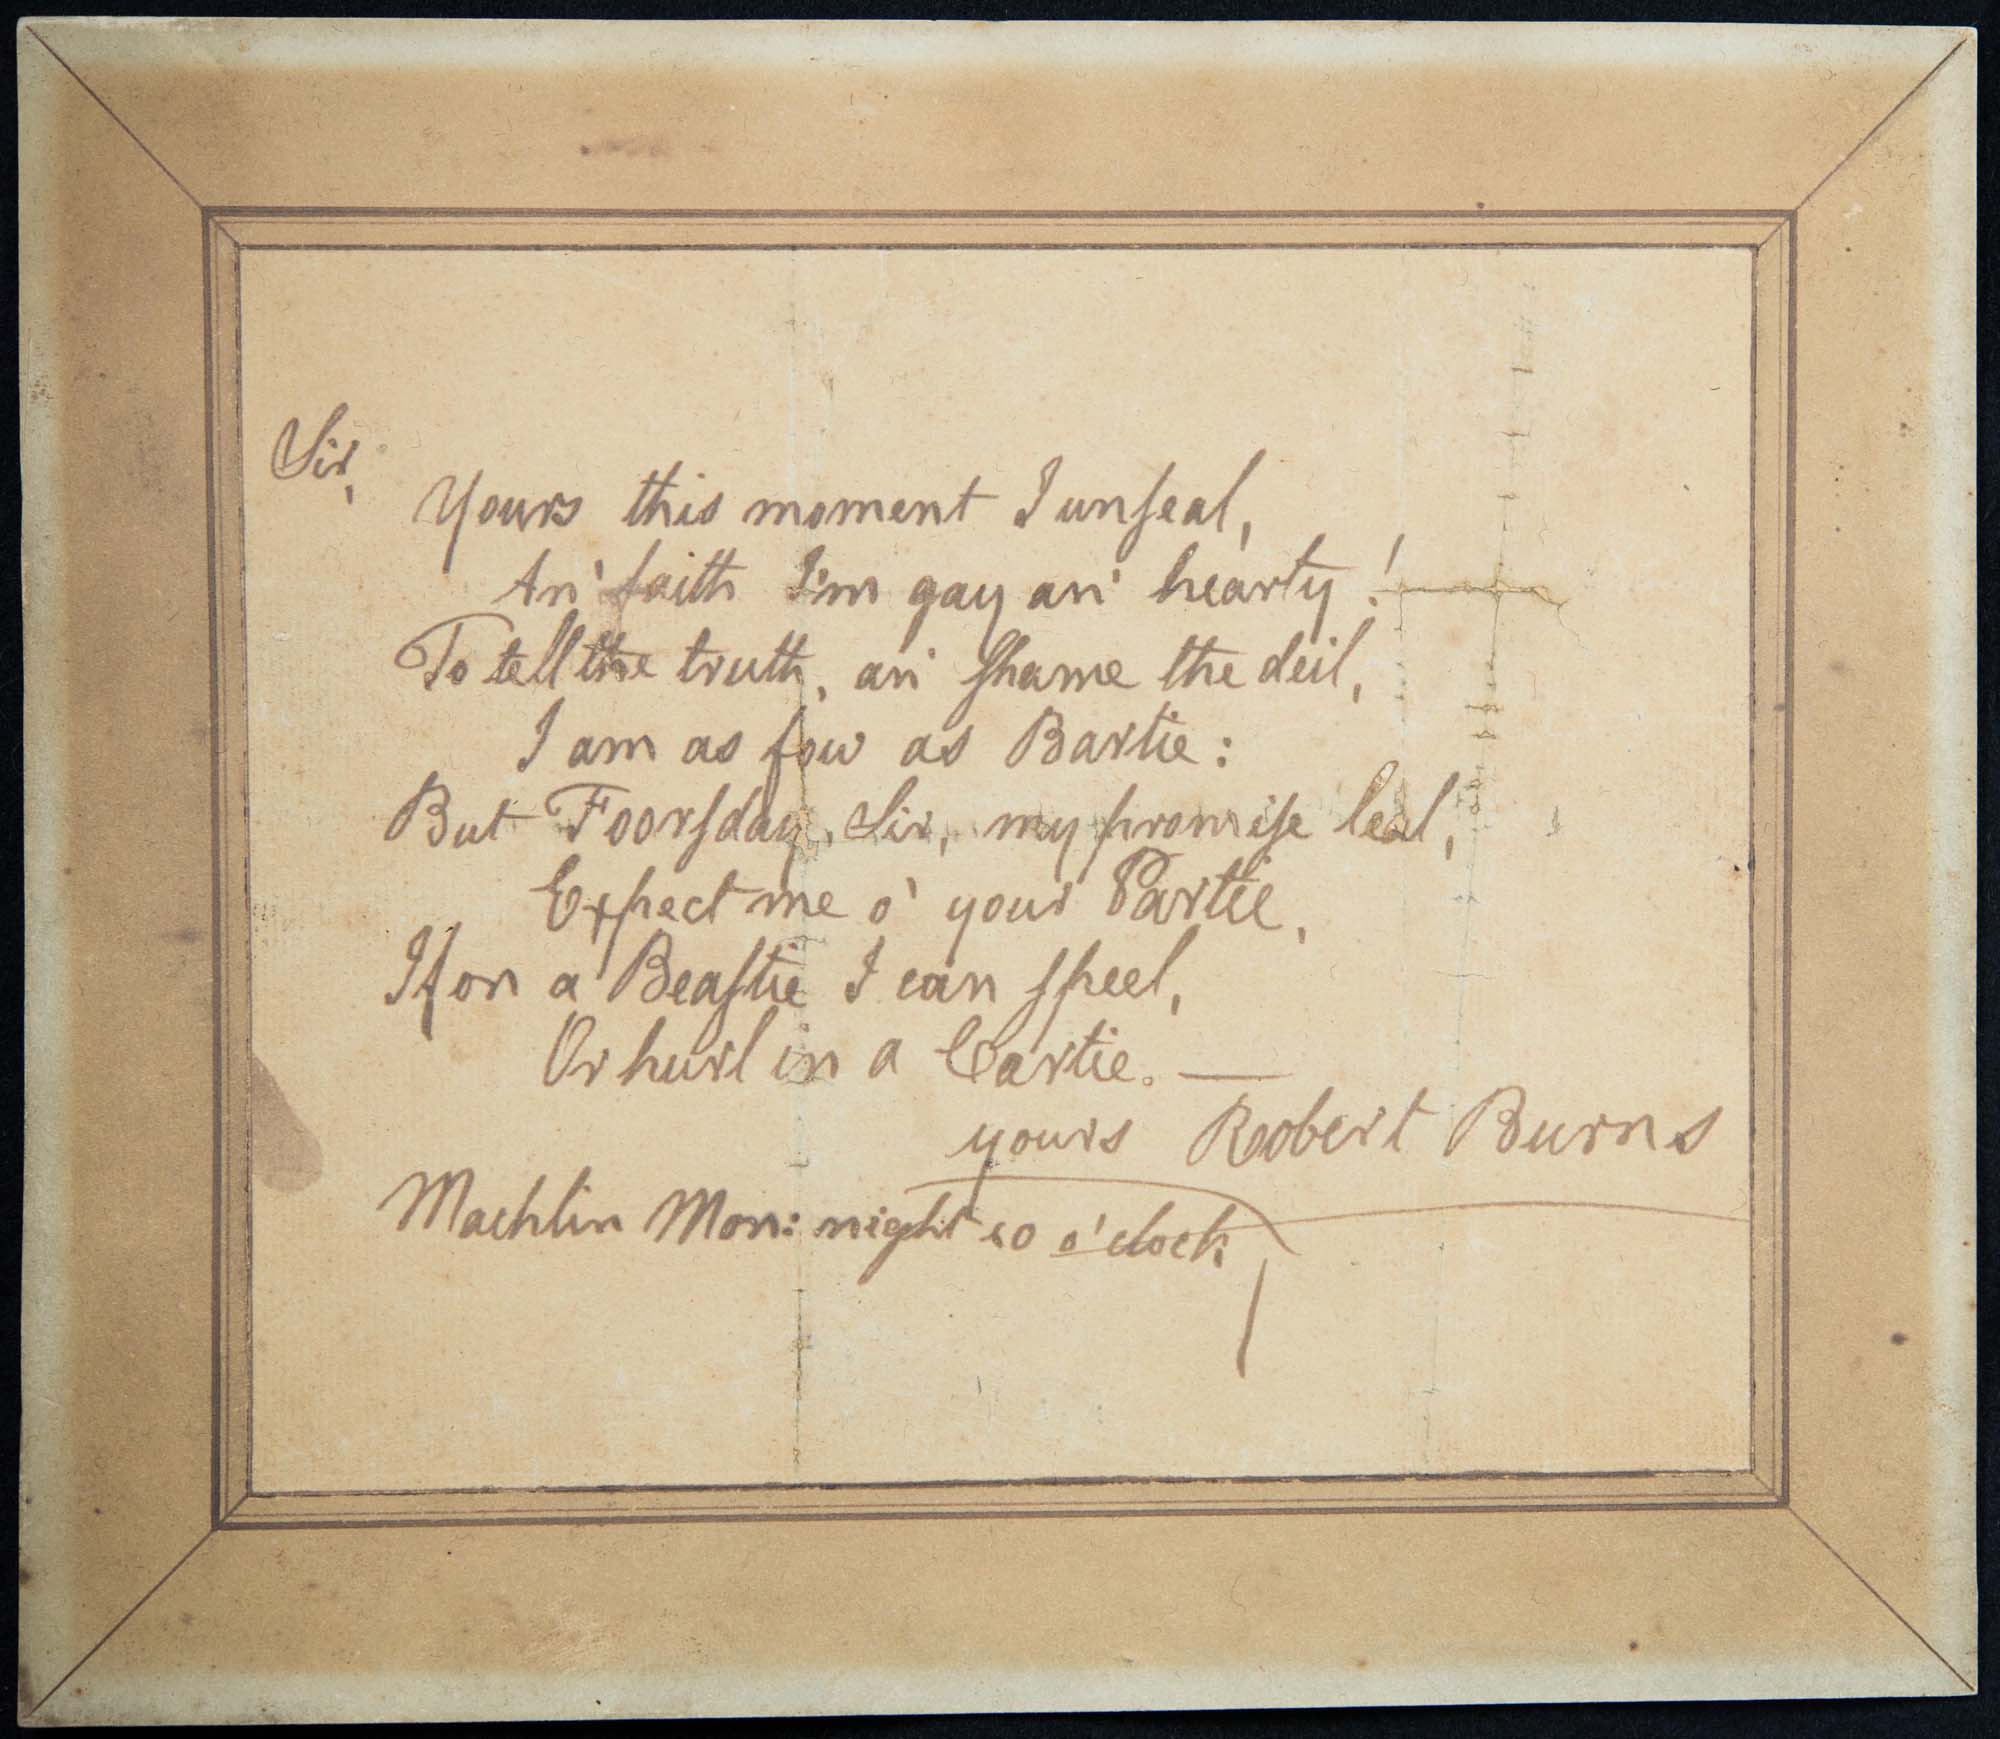 Sir,
Yours this moment I unſeal,
An' faith I'm gay an' hearty!
To tell the truth, an' ſhame the deil,
I am as fow as Bartie:
But Foorſday, Sir, my promiſe leal,
Expect me o' your Partie,
If on a Beaſtie I can ſpeel,
Or hurl in a Cartie. —
yours Robert Burns
Machlin Mon: night 10 o'clock